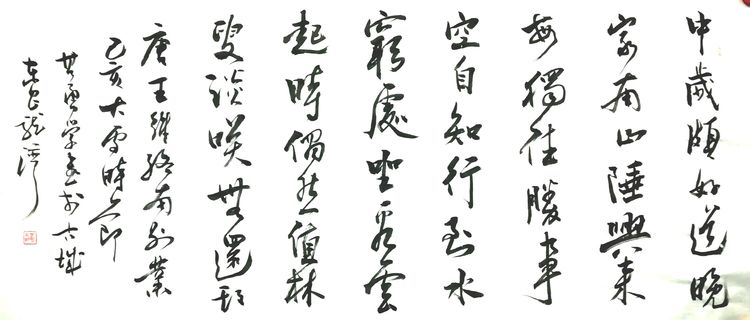 中歲頗好道晚
家南山陲興來
每獨往勝事
空自知行到水
窮處坐看雲
起時偶然值林
叟談笑無還期
唐王維終南別業
乙亥大雪時節
於古城